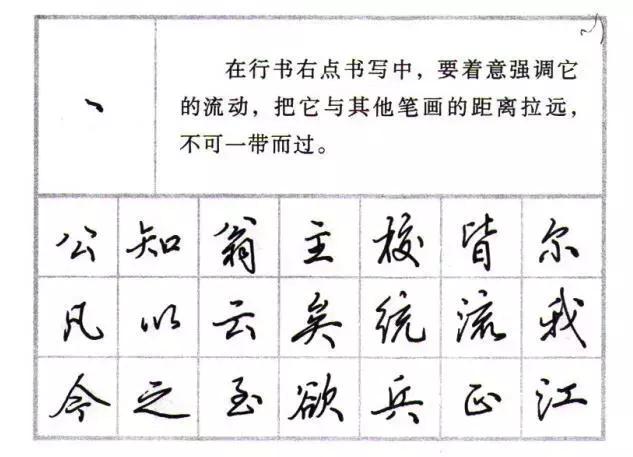 丶
在行书右点书写中，要着意强调它
的流动，把它与其他笔画的距离拉远，
不可一带而过。
公知翁主校皆尔
凡以云矣统流我
今之至欲兵正江